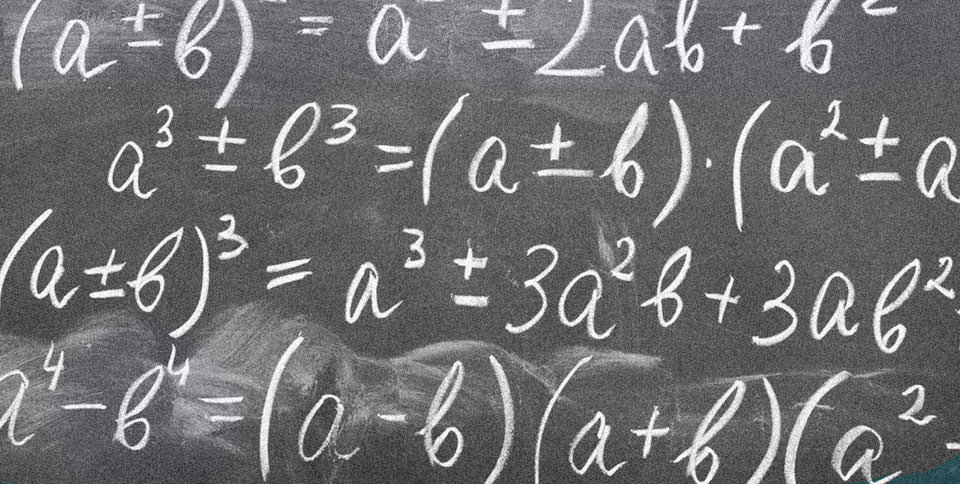 (a ± b)² = a² ± 2ab + b²
a³ ± b³ = (a ± b) · (a² ± a
(a ± b)³ = a³ ± 3a²b + 3ab²
a⁴ − b⁴ = (a − b)(a + b)(a² −